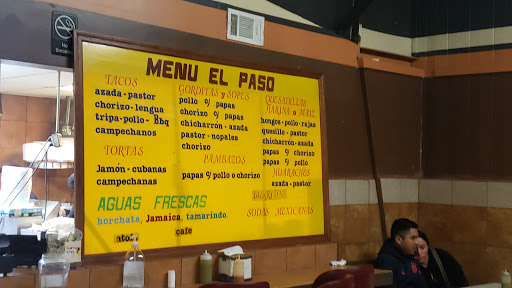 No Smoking
MENU EL PASO
TACOS
azada - pastor
chorizo - lengua
tripa - pollo - Bbq
campechanos
TORTAS
Jamón - cubanas
campechanas
AGUAS FRESCAS
horchata, Jamaica, tamarindo.
cafe
GORDITAS y SOPES
pollo c/ papas
chorizo c/ papas
chicharrón - azada
pastor - nopales
chorizo
PAMBAZOS
papas c/ pollo o chorizo
QUESADILLAS
HARINA o MAIZ
hongos - pollo - rajas
quesillo - pastor
chicharrón - azada
papas c/ chorizo
papas c/ pollo
HUARACHES
azada - pastor
SODAS MEXICANAS